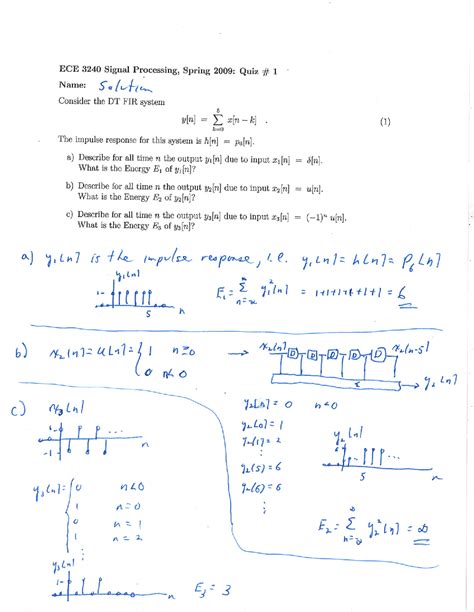 ECE 3240 Signal Processing, Spring 2009: Quiz # 1
Name: Solution
Consider the DT FIR system
y[n] = ∑ x[n − k] . (1)
k=0
The impulse response for this system is h[n] = p₆[n].
a) Describe for all time n the output y₁[n] due to input x₁[n] = δ[n].
What is the Energy E₁ of y₁[n]?
b) Describe for all time n the output y₂[n] due to input x₂[n] = u[n].
What is the Energy E₂ of y₂[n]?
c) Describe for all time n the output y₃[n] due to input x₃[n] = (−1)ⁿ u[n].
What is the Energy E₃ of y₃[n]?
a) y₁[n] is the impulse response, i.e. y₁[n] = h[n] = P₆[n]
y₁[n]
E₁ = ∑ y₁²[n] = 1+1+1+1+1+1 = 6
n=-∞
5 n
b) x₂[n] = u[n] = { 1 n≥0
0 n<0
→ x₂[n] D D D D D x₂[n-5]
→ y₂[n]
c) x₃[n]
1 ...
-1 n
y₂[n] = 0 n<0
y₂[0] = 1
y₂[1] = 2
⋮
y₂[5] = 6
y₂[6] = 6
⋮
y₂[n]
6
5 n
E₂ = ∑ y₂²[n] = ∞
y₃[n] = { 0 n<0
1 n=0
0 n=1
1 n=2
⋮
y₃[n]
n
E₃ = 3